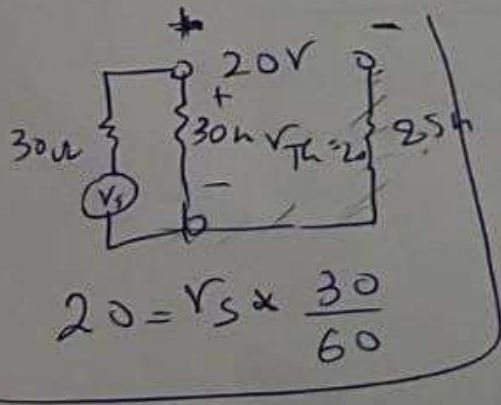 + -
20V
+
30Ω 30Ω VTh=20 25Ω
Vs
-
20 = Vs × 30/60